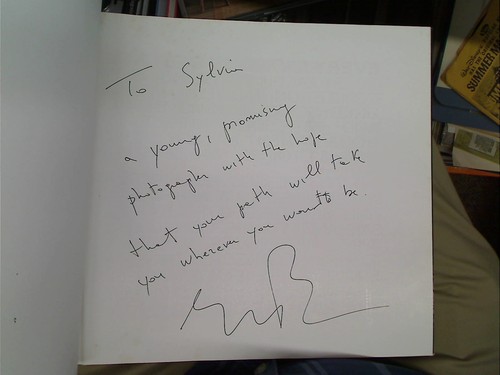 To Sylvia
a young, promising
photographer with the hope
that your path will take
you wherever you want to be.
SUMMER